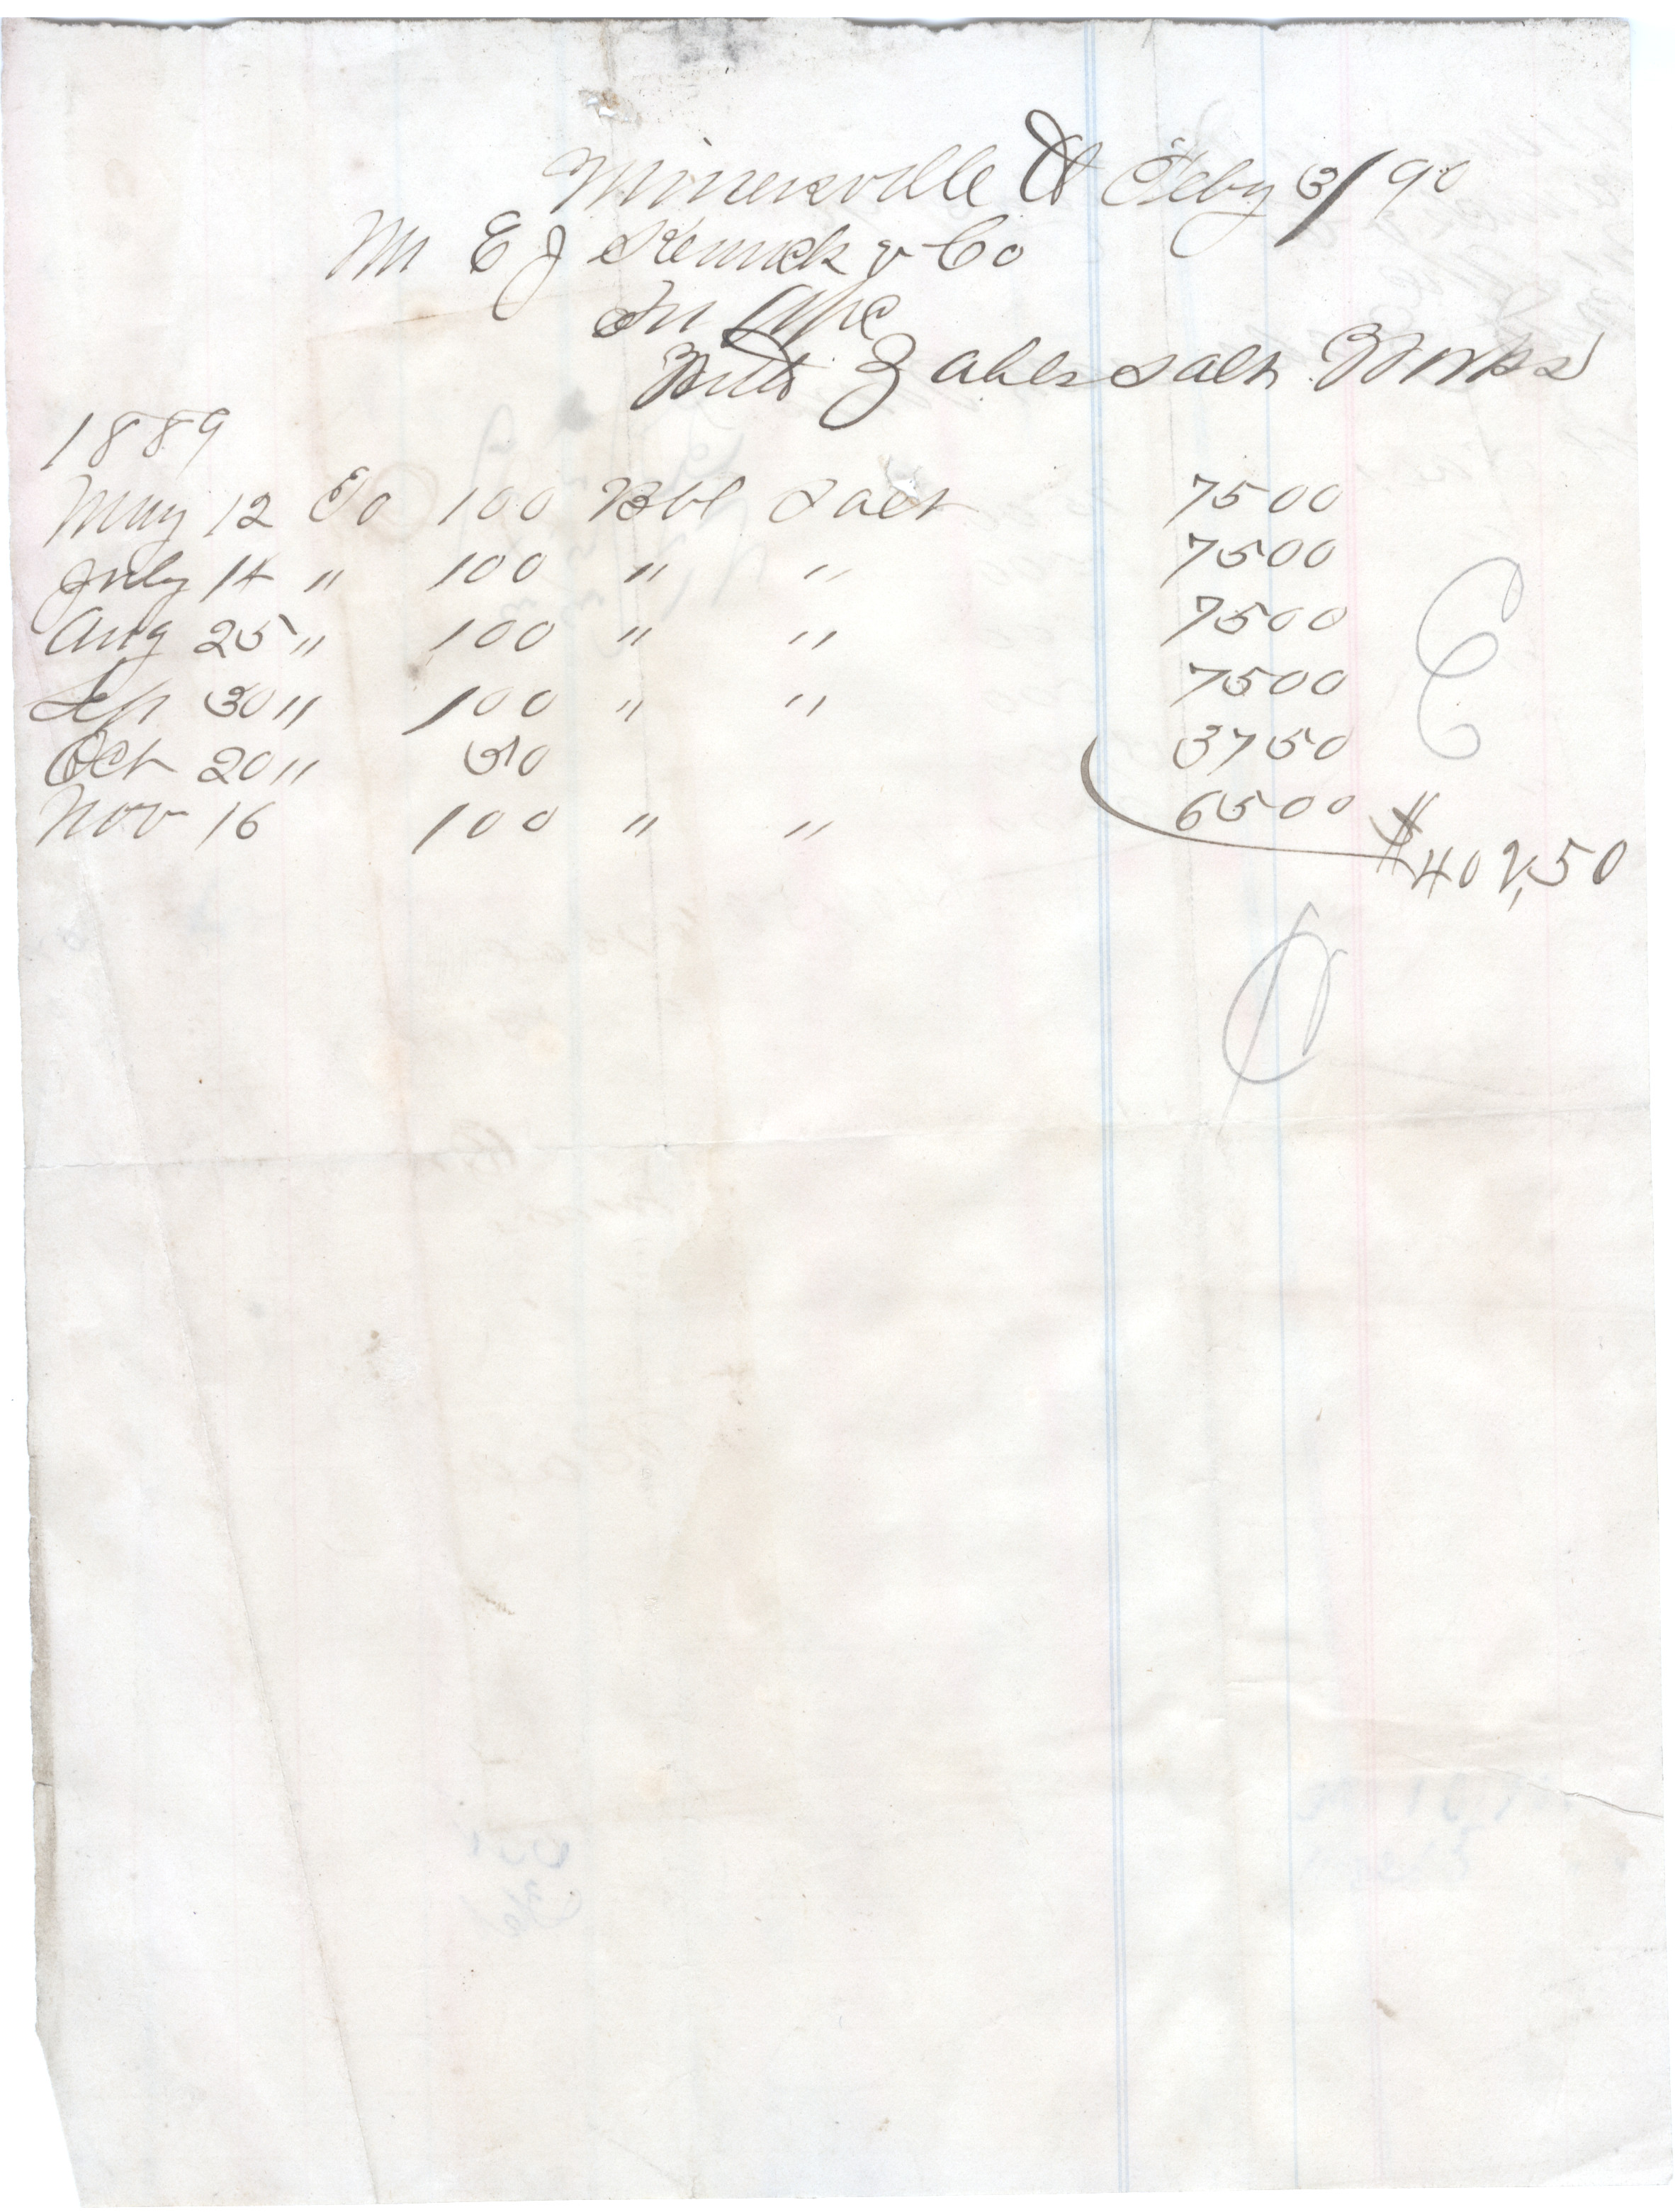 Minersville O Feby 3/90
Mr E J & Co
In a/c
With Zahls Salt Works
1889
May 12 To 100 Bbl Salt 7500
July 14 " 100 " " 7500
Aug 25 " 100 " " 7500
Sep 30 " 100 " " 7500
Oct 20 " 50 3750
Nov 16 100 " " 6500
$402,50